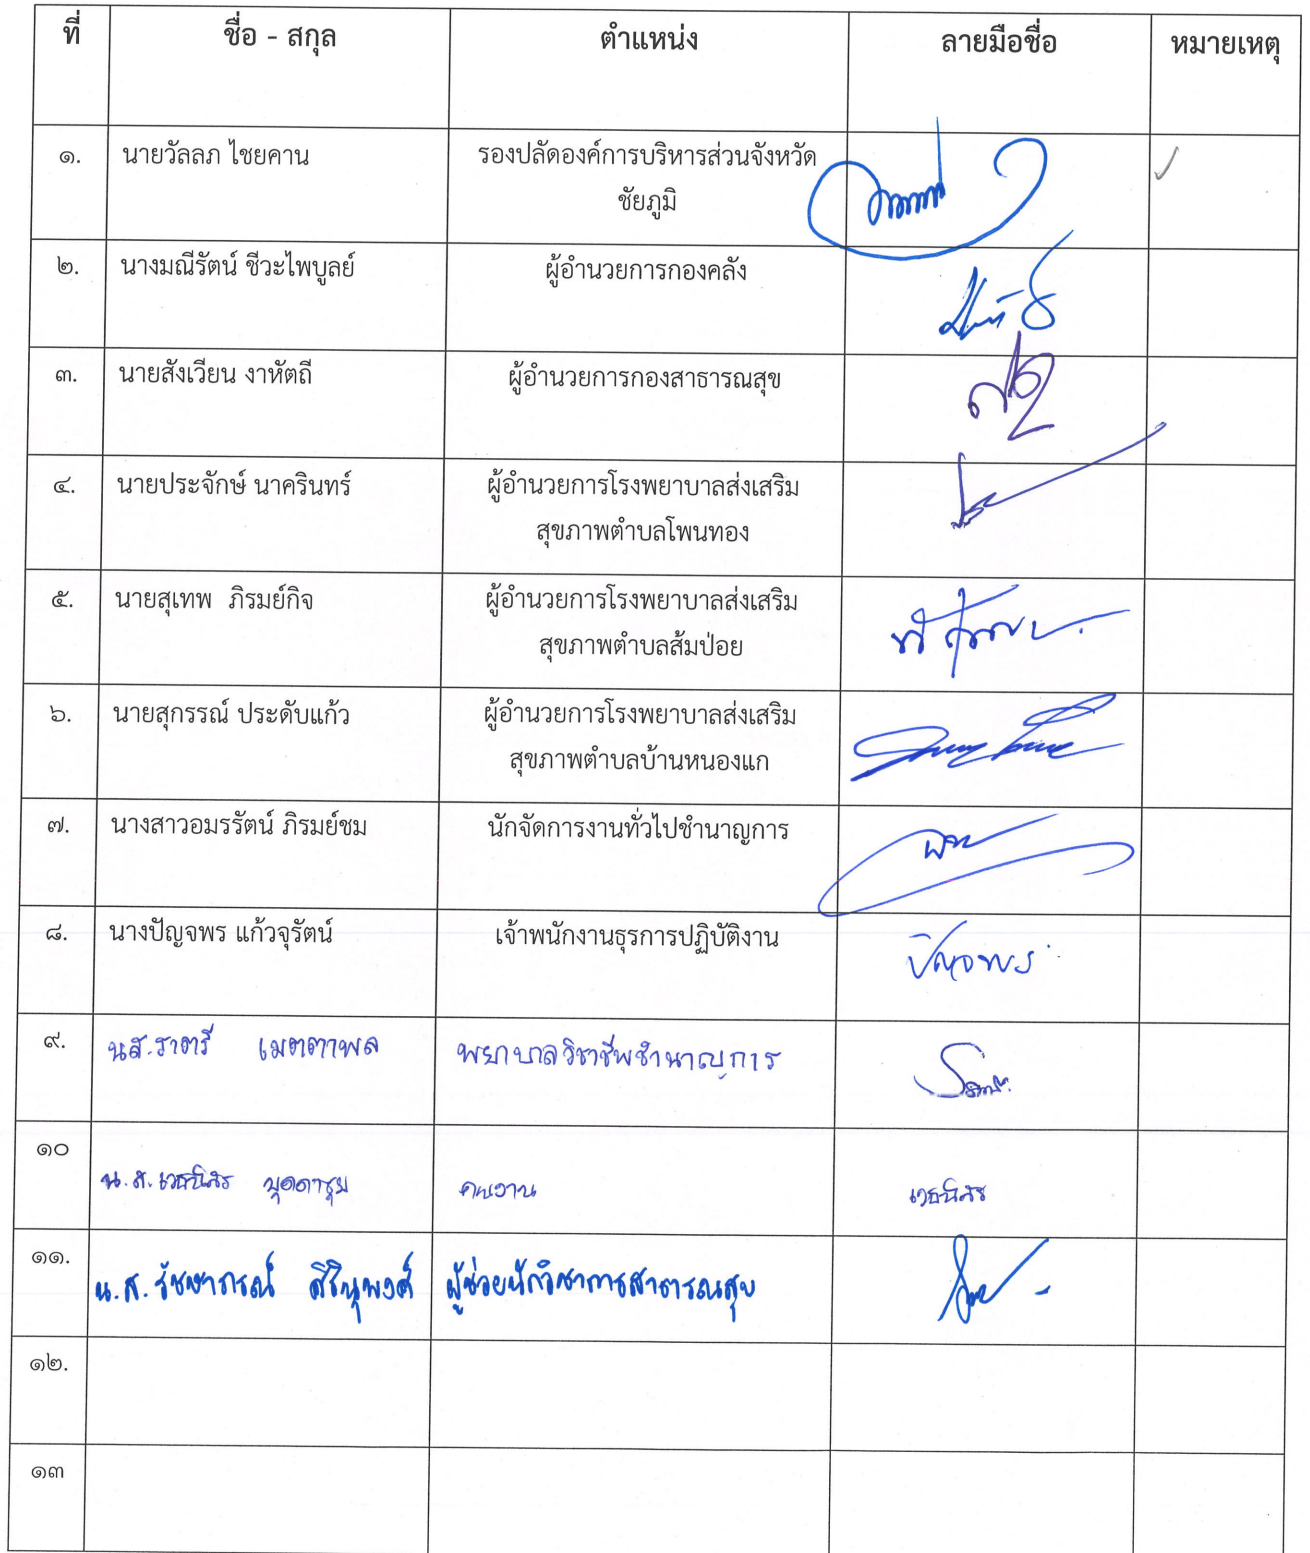 ที่ ชื่อ - สกุล ตำแหน่ง ลายมือชื่อ หมายเหตุ
๑. นายวัลลภ ไชยคาน รองปลัดองค์การบริหารส่วนจังหวัด
ชัยภูมิ
๒. นางมณีรัตน์ ชีวะไพบูลย์ ผู้อำนวยการกองคลัง
๓. นายสังเวียน งาหัตถี ผู้อำนวยการกองสาธารณสุข
๔. นายประจักษ์ นาครินทร์ ผู้อำนวยการโรงพยาบาลส่งเสริม
สุขภาพตำบลโพนทอง
๕. นายสุเทพ ภิรมย์กิจ ผู้อำนวยการโรงพยาบาลส่งเสริม
สุขภาพตำบลส้มป่อย
๖. นายสุกรรณ์ ประดับแก้ว ผู้อำนวยการโรงพยาบาลส่งเสริม
สุขภาพตำบลบ้านหนองแก
๗. นางสาวอมรรัตน์ ภิรมย์ชม นักจัดการงานทั่วไปชำนาญการ
๘. นางปัญจพร แก้วจุรัตน์ เจ้าพนักงานธุรการปฏิบัติงาน ปัญจพร
๙. นส.ราตรี เมตตาพล พยาบาลวิชาชีพชำนาญการ
๑๐ น.ส. คนงาน
๑๑. น.ส. ผู้ช่วยนักวิชาการสาธารณสุข
๑๒.
๑๓